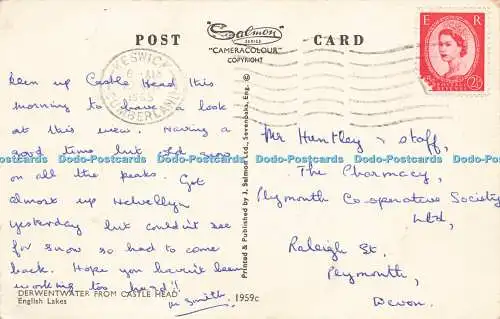 POST
Salmon
SERIES
"CAMERACOLOUR"
COPYRIGHT
CARD
E R
POSTAGE REVENUE
2½D
KESWICK
1955
CUMBERLAND
been up Castle Head this
morning to have a look
at this view. Having a
good time but old snow
on all the peaks. Got
almost up Helvellyn
yesterday but couldn't see
for snow so had to come
back. Hope you haven't been
working too hard!
M Smith.
Mr Huntley & staff,
The Pharmacy,
Plymouth Co-operative Society
Ltd,
Raleigh St.
Plymouth,
Devon.
Printed & Published by J. Salmon Ltd., Sevenoaks, Eng. ©
DERWENTWATER FROM CASTLE HEAD
English Lakes
1959c
Dodo-Postcards Dodo-Postcards Dodo-Postcards Dodo-Postcards Dodo-Postcards Dodo-Postcards